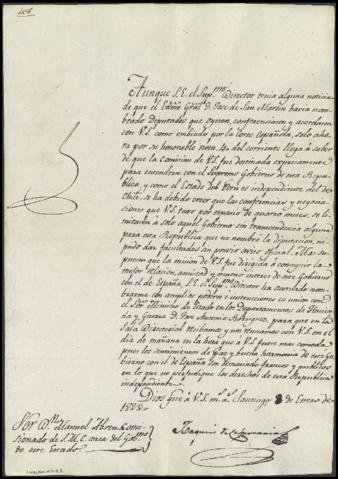 Aunque S.E. el Supmo Director tenia alguna noticia
de que el Exmo Gral D. Jose de San Martin havia nom-
brado Diputados que oyesen, conferenciasen y acordasen
con V.S. como embiado por la Corte Española, solo aho-
ra por su honorable nota 4 del corriente llega à saber
de que la Comision de V.S. fue destinada expresamente
para entenderse con el Supremo Gobierno de esta Re-
publica, y como el Estado del Perú es independiente del de
Chile, se ha debido creer que las conferencias y negocia-
ciones que V.S. tuvo por espacio de quatro meses, se li-
mitarán à solo aquel Gobierno sin trascendencia alguna
para esta Republica que no nombro la diputacion, ni
pudo dar facultades sin previo aviso oficial. Mas su-
puesto que la mision de V.S. fue dirigida à conseguir la
mejor relacion, amistad y mutuo interes de este Gobierno
con el de España, S.E. el Supmo Director ha acordado nom-
brarme con amplios poderes e instrucciones en union con el
Sor Ministro de Estado en los Departamentos de Hacien-
da y Guerra D. Jose Antonio Rodriguez, para que en la
Sala Directorial recibamos y nos reunamos con V.S. en el
dia de mañana en la hora que à V.S. fuere mas comoda
pones los sentimientos de Paz y buena harmonia de este Go-
bierno con el de España sean demasiado francos y
en lo que no perjudique los derechos de esta Republica
independiente.
Dios gue à V.S. m. a. Santiago 8 de Enero de
1822.
Joaquin de Echeverria
Sor Dn Manuel Abreu Comi-
sionado de S.M.C. cerca del Gobno
de este Estado.